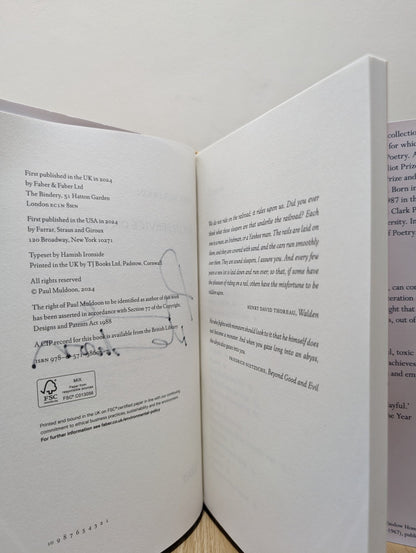 First published in the UK in 2024
by Faber & Faber Ltd
The Bindery, 51 Hatton Garden
London EC1N 8HN
First published in the USA in 2024
by Farrar, Straus and Giroux
120 Broadway, New York 10271
Typeset by Hamish Ironside
Printed in the UK by TJ Books Ltd, Padstow, Cornwall
All rights reserved
© Paul Muldoon, 2024
The right of Paul Muldoon to be identified as author of this work
has been asserted in accordance with Section 77 of the Copyright,
Designs and Patents Act 1988
A CIP record for this book is available from the British Library
ISBN 978–
FSC
MIX
Paper from
responsible sources
FSC® C013056
Printed and bound in the UK on FSC® certified paper in line with our continuing
commitment to ethical business practices, sustainability and the environment.
For further information see faber.co.uk/environmental-policy
10 9 8 7 6 5 4 3 2 1
We do not ride on the railroad; it rides upon us. Did you ever
think what those sleepers are that underlie the railroad? Each
one is a man, an Irishman, or a Yankee man. The rails are laid on
them, and they are covered with sand, and the cars run smoothly
over them. They are sound sleepers, I assure you. And every few
years a new lot is laid down and run over; so that, if some have
the pleasure of riding on a rail, others have the misfortune to be
ridden upon.
HENRY DAVID THOREAU, Walden
He who fights with monsters should look to it that he himself does
not become a monster. And when you gaze long into an abyss,
the abyss also gazes into you.
FRIEDRICH NIETZSCHE, Beyond Good and Evil
collection
for which
Poetry. A
Eliot Prize
Prize and
Born in
1987 in th
Clark P
University. In
of Poetry
, can co
eration
ght that
s, out of
, toxic
achieves
and em
ayful.'
the Year